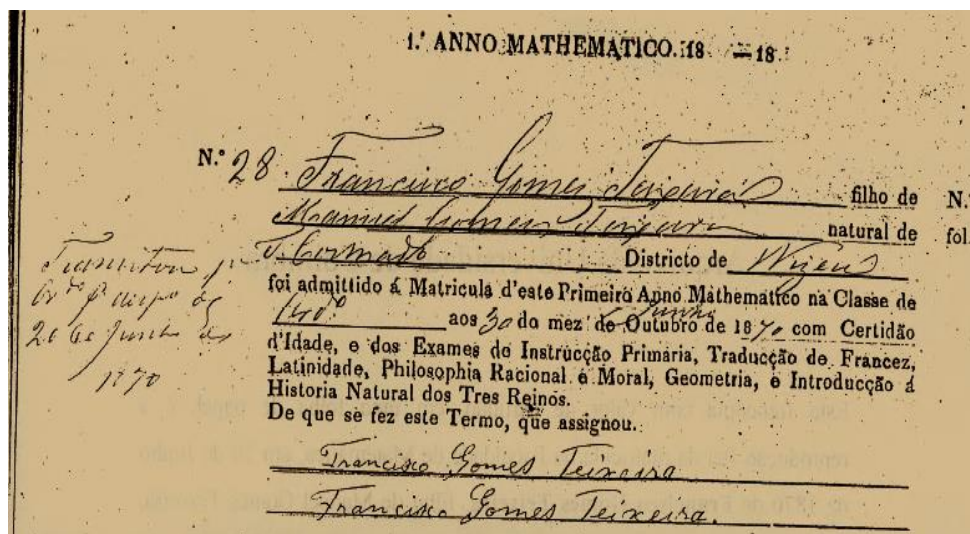 1.º ANNO MATHEMATICO. 18 — 18
N.º 28 Francisco Gomes Teixeira filho de
Manuel Gomes Teixeira natural de
S. Cosmado Districto de Vizeu
foi admittido á Matricula d'este Primeiro Anno Mathematico na Classe de
aos 30 do mez de Outubro Junho de 1870 com Certidão
d'Idade, e dos Exames de Instrucção Primaria, Traducção de Francez,
Latinidade, Philosophia Racional e Moral, Geometria, e Introducção á
Historia Natural dos Tres Reinos.
De que se fez este Termo, que assignou.
Francisco Gomes Teixeira
Francisco Gomes Teixeira.
Transitou
de
26 de Junho de
1870
N.º
fol.